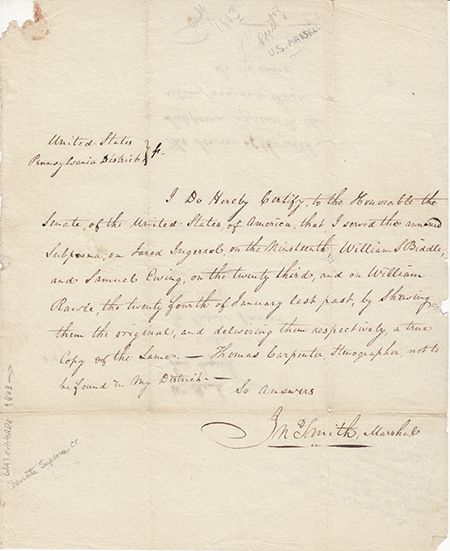 1803
U.S. MARSHAL
United States
Pennsylvania District } ss.
I Do Hereby Certify, to the Honorable the
Senate, of the United States of America, that I served the annexed
Subpoena, on Jared Ingersol, on the Nineteenth, William S Biddle,
and Samuel Ewing, on the twenty third, and on William
Rawle, the twenty fourth of January last past, by Shewing
them the original, and delivering them respectively, a true
Copy of the Same. — Thomas Carpenter Stenographer, not to
be found in my District. —
So Answers
Jn Smith, Marshal
WATERMARK 1803
Senate